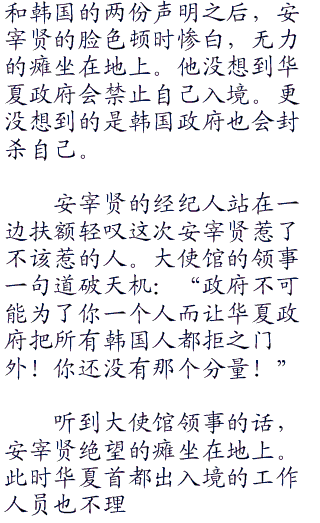 和韩国的两份声明之后，安
宰贤的脸色顿时惨白，无力
的瘫坐在地上。他没想到华
夏政府会禁止自己入境。更
没想到的是韩国政府也会封
杀自己。
安宰贤的经纪人站在一
边扶额轻叹这次安宰贤惹了
不该惹的人。大使馆的领事
一句道破天机：“政府不可
能为了你一个人而让华夏政
府把所有韩国人都拒之门
外！你还没有那个分量！”
听到大使馆领事的话，
安宰贤绝望的瘫坐在地上。
此时华夏首都出入境的工作
人员也不理